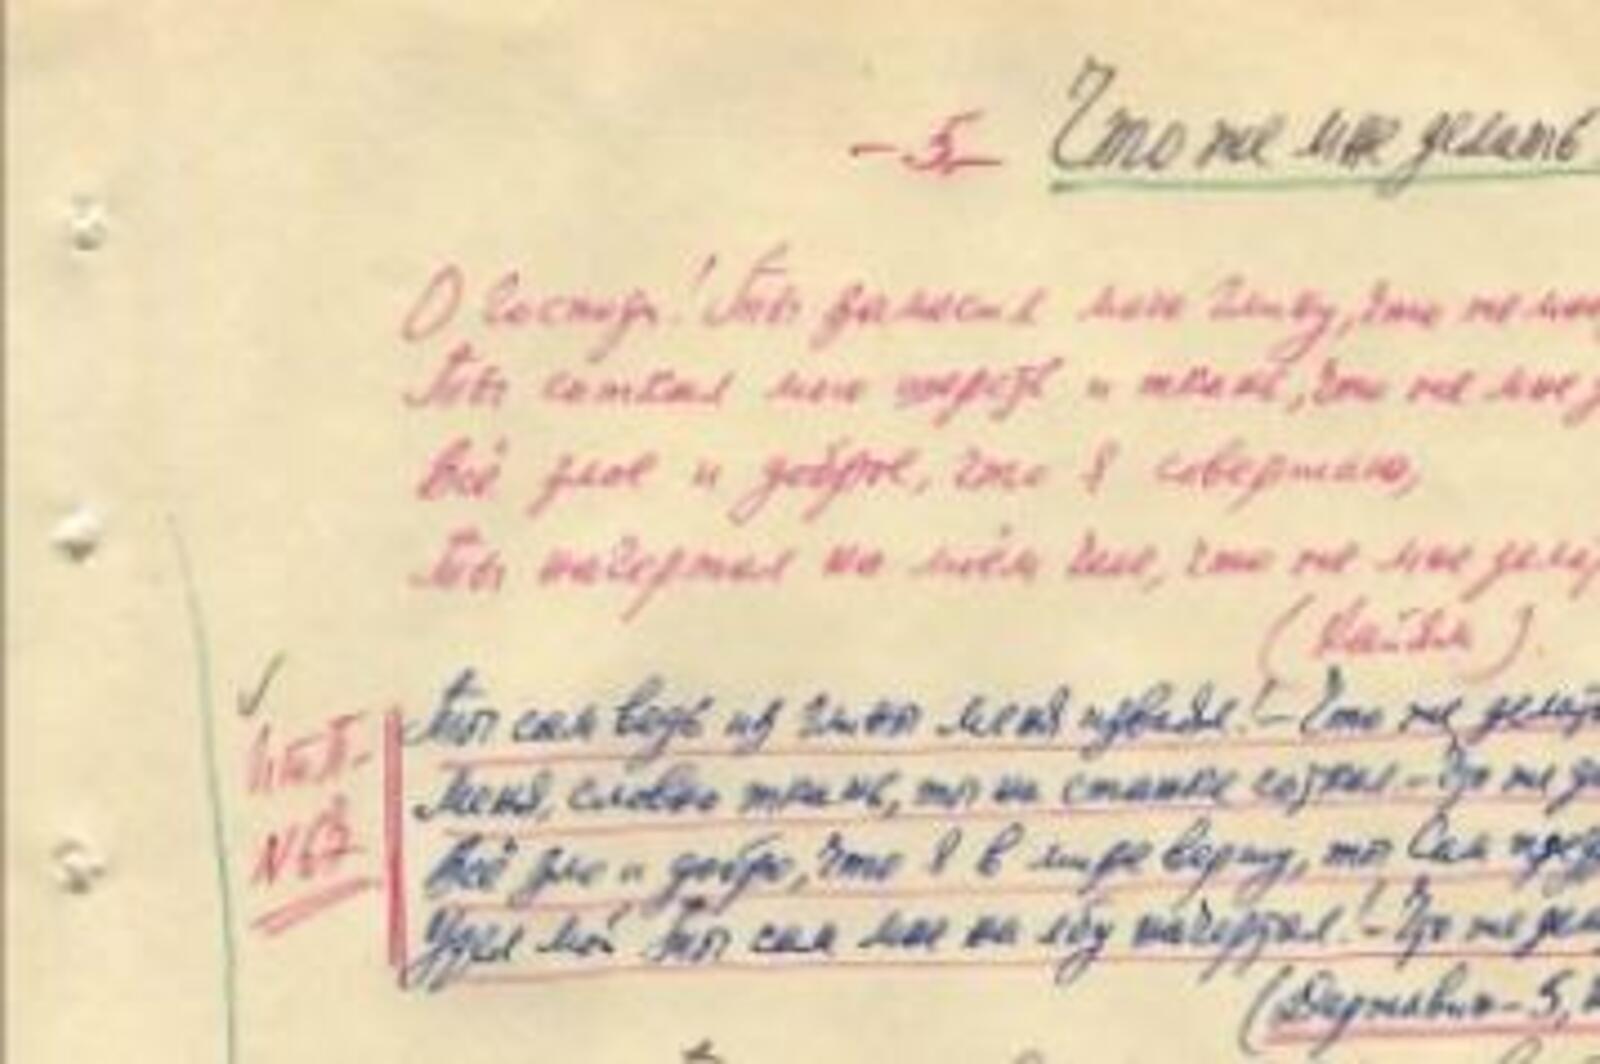 -5- Что же мне делать
О Господи! Ты замесил мою глину, что же мне
Ты соткал мою шерсть и ткань, что же мне
Всё злое и доброе, что я совершаю,
Ты начертал на моём челе, что же мне делать
(Хайям).
Ты сам ведь из глины меня изваял! - Что же делать
Меня, словно ткань, ты на станке соткал - Что же
Всё зло и добро, что я в мире вершу, ты Сам
Удел мой Ты сам мне на лбу начертал! - Что же
(Державин - 5,
N 67